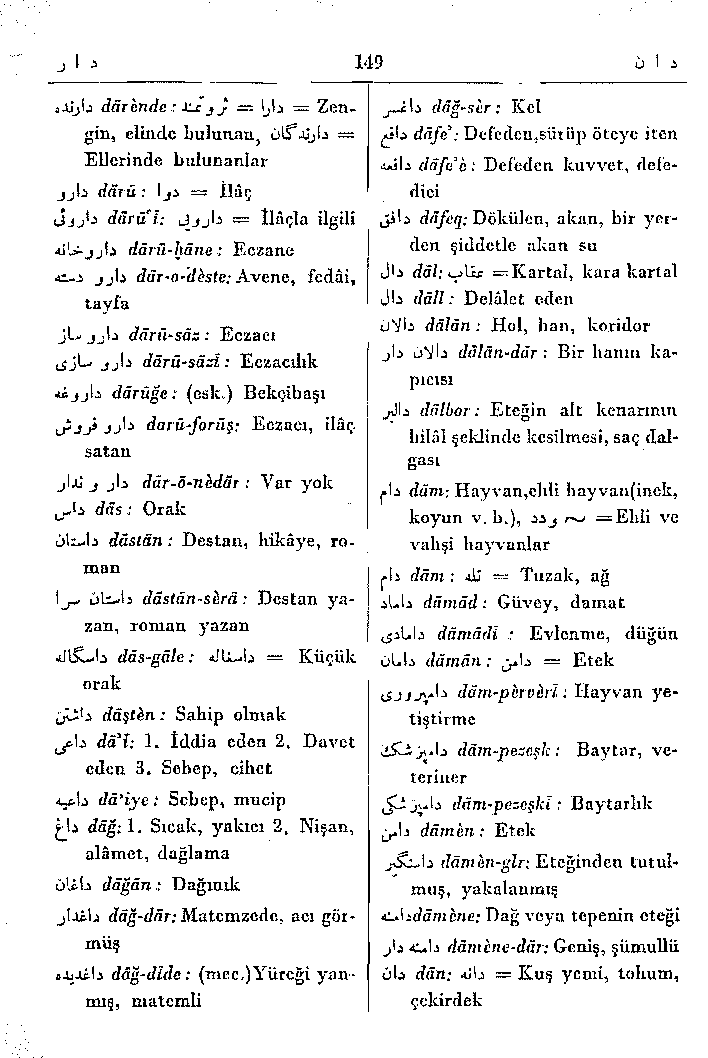 د ا ر 149 د ا ن
دارنده dārènde: ثروتمند = دارا = Zen-
gin, elinde bulunan, دارندگان =
Ellerinde bulunanlar
دارو dārū: دوا = İlâç
داروئی dārū'ī: داروی = İlâçla ilgili
داروخانه dārū-ḫāne: Eczane
دارو دسته dār-o-dèste: Avene, fedâi,
tayfa
دارو ساز dārū-sāz: Eczacı
دارو سازی dārū-sāzī: Eczacılık
داروغه dārūğe: (esk.) Bekçibaşı
دارو فروش darū-forūş: Eczacı, ilâç
satan
دار و ندار dār-ō-nèdār: Var yok
داس dās: Orak
داستان dāstān: Destan, hikâye, ro-
man
داستان سرا dāstān-sèrā: Destan ya-
zan, roman yazan
داسگاله dās-gāle: داسغاله = Küçük
orak
داشتن dāştèn: Sahip olmak
داعی dā'ī: 1. İddia eden 2. Davet
eden 3. Sebep, cihet
داعیه dā'iye: Sebep, mucip
داغ dāğ: 1. Sıcak, yakıcı 2. Nişan,
alâmet, dağlama
داغان dāğān: Dağınık
داغدار dāğ-dār: Matemzede, acı gör-
müş
داغدیده dāğ-dīde: (mec.) Yüreği yan-
mış, matemli
داغسر dāğ-sèr: Kel
دافع dāfe': Defeden, sürüp öteye iten
دافعه dāfe'è: Defeden kuvvet, defe-
dici
دافق dāfeq: Dökülen, akan, bir yer-
den şiddetle akan su
دال dāl: عقاب = Kartal, kara kartal
دال dāll: Delâlet eden
دالان dālān: Hol, han, koridor
دالان دار dālān-dār: Bir hanın ka-
pıcısı
دالبر dālbor: Eteğin alt kenarının
hilâl şeklinde kesilmesi, saç dal-
gası
دام dām: Hayvan, ehli hayvan (inek,
koyun v. b.), دام و دد = Ehli ve
vahşi hayvanlar
دام dām: تله = Tuzak, ağ
داماد dāmād: Güvey, damat
دامادی dāmādī: Evlenme, düğün
دامان dāmān: دامن = Etek
دامپروری dām-pèrvèrī: Hayvan ye-
tiştirme
دامپزشک dām-pezeşk: Baytar, ve-
teriner
دامپزشکی dām-pezeşkī: Baytarlık
دامن dāmèn: Etek
دامنگیر dāmèn-gīr: Eteğinden tutul-
muş, yakalanmış
دامنه dāmène: Dağ veya tepenin eteği
دامنه دار dāmène-dār: Geniş, şümullü
دان dān: دانه = Kuş yemi, tohum,
çekirdek